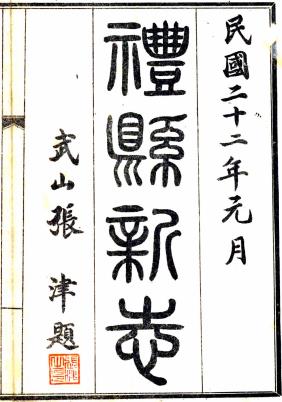 民國二十二年元月
禮縣新志
武山張津題